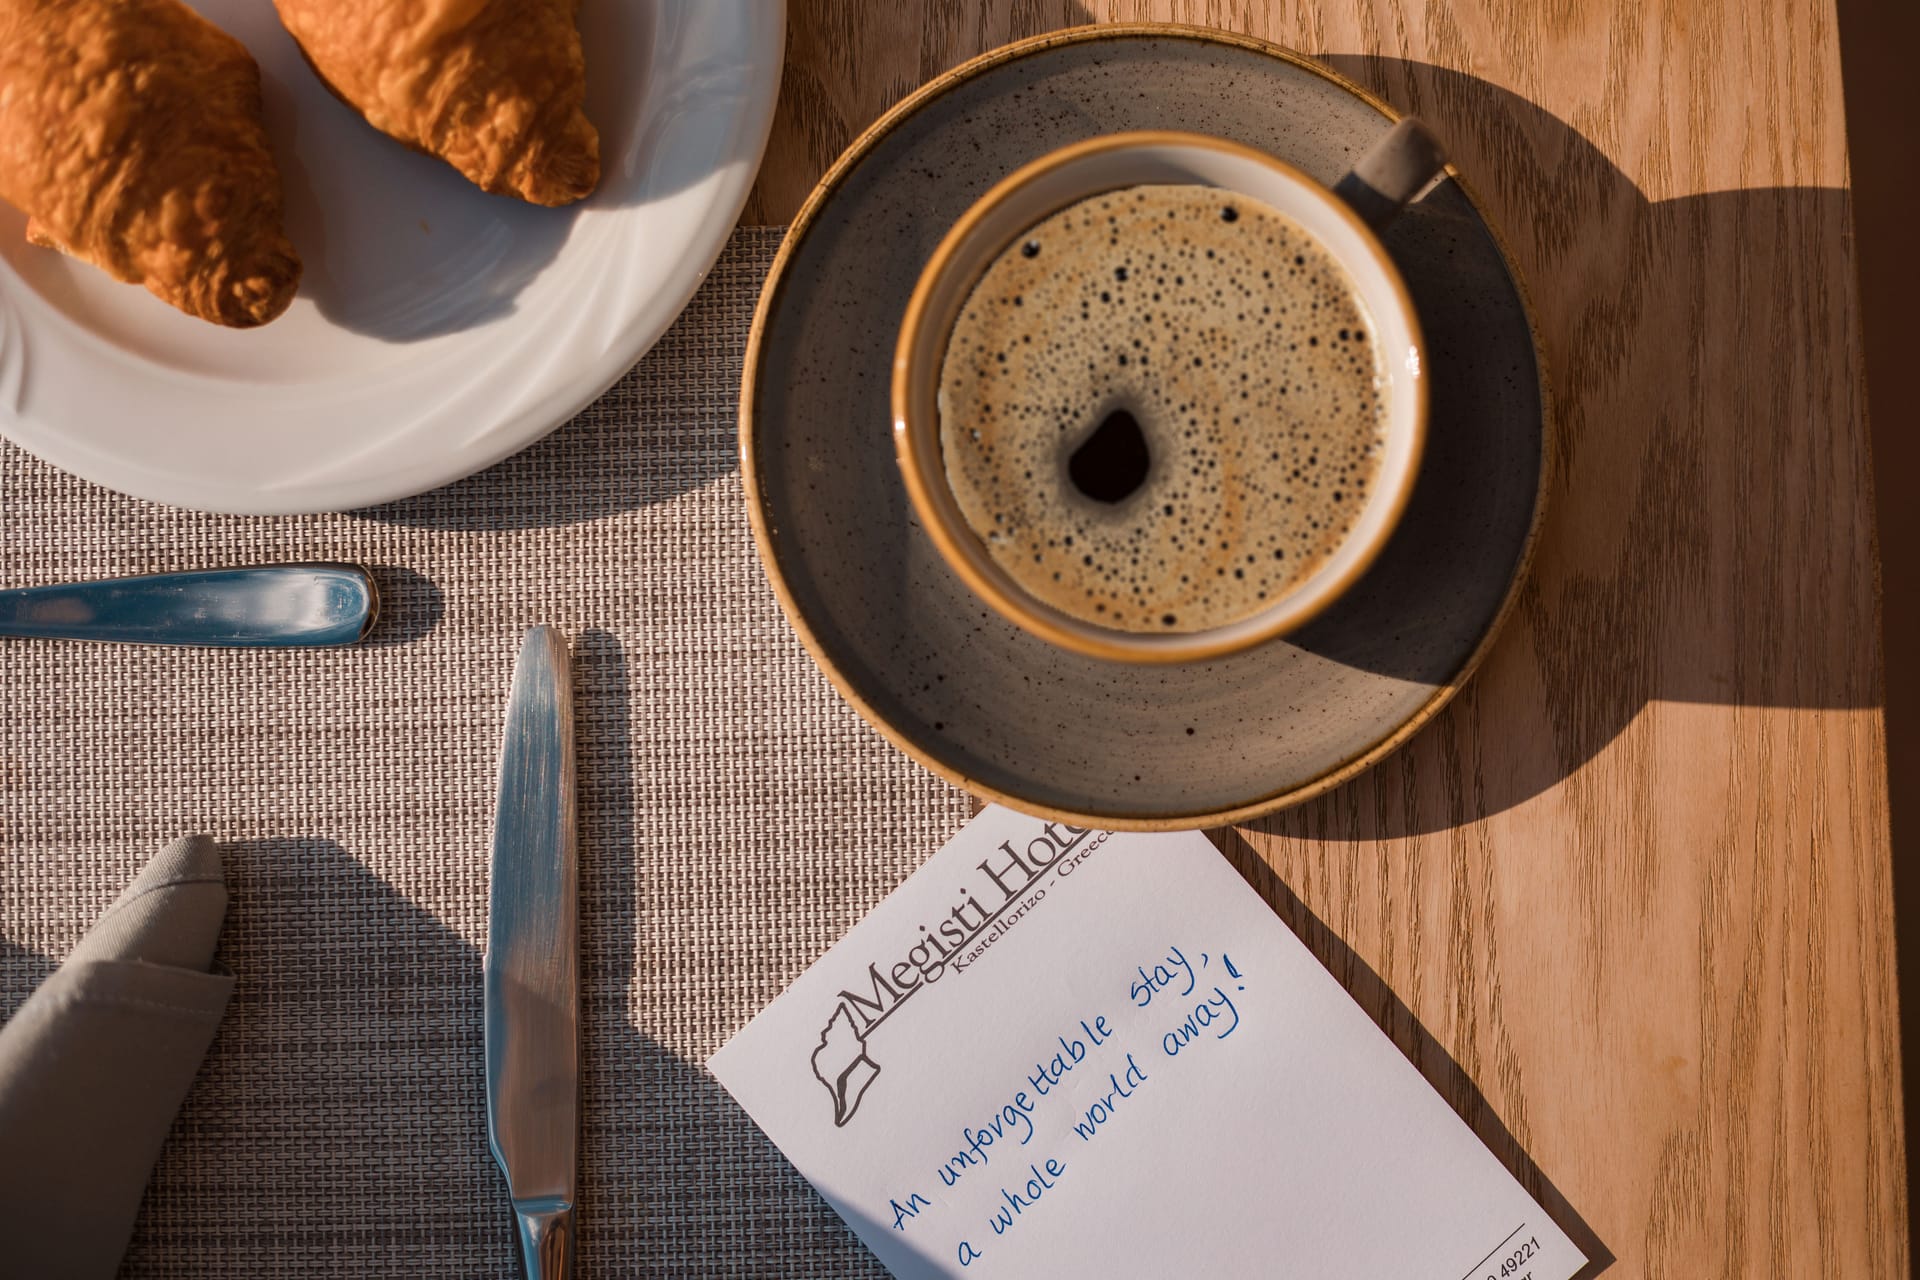 Megisti Hote
Kastellorizo - Greece
An unforgettable stay,
a whole world away!
49221